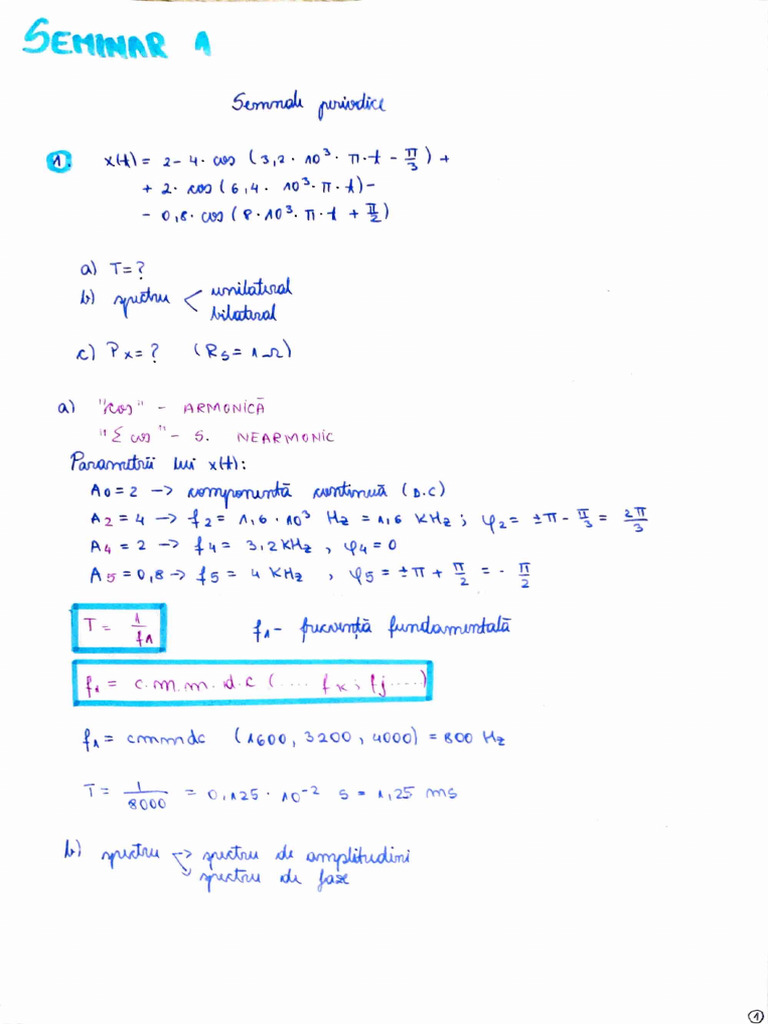 SEMINAR 1
Semnale periodice
1. x(t) = 2 - 4 · cos (3,2 · 10³ · π · t - π/3) +
+ 2 · cos (6,4 · 10³ · π · t) -
- 0,8 · cos (8 · 10³ · π · t + π/2)
a) T = ?
b) spectru < unilateral
bilateral
c) Px = ? (Rs = 1 Ω)
a) "cos" - ARMONICĂ
"Σ cos" - S. NEARMONIC
Parametrii lui x(t):
A0 = 2 -> componentă continuă (D.C)
A2 = 4 -> f2 = 1,6 · 10³ Hz = 1,6 KHz ; φ2 = ±π - π/3 = 2π/3
A4 = 2 -> f4 = 3,2 KHz , φ4 = 0
A5 = 0,8 -> f5 = 4 KHz , φ5 = ±π + π/2 = - π/2
T = 1/f1 f1 - frecvență fundamentală
f1 = c.m.m.d.c (.... fk ; fj ....)
f1 = cmmdc (1600, 3200, 4000) = 800 Hz
T = 1/8000 = 0,125 · 10⁻² s = 1,25 ms
b) spectru -> spectru de amplitudini
-> spectru de faze
1